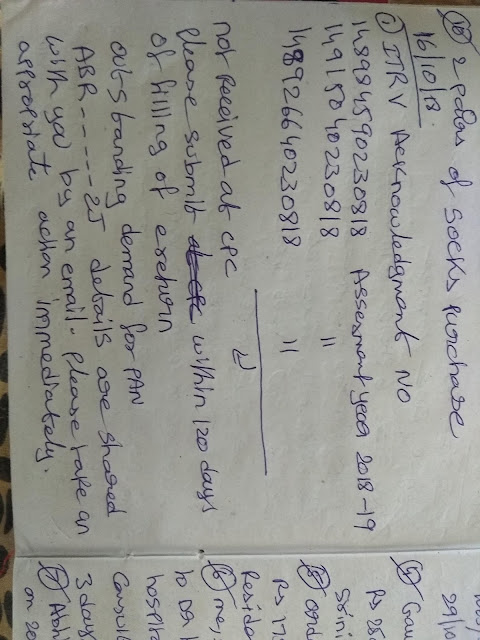 (15) 2 pairs of Socks purchase
16/10/18
(1) ITRV Acknowledgment NO
148984590230818 Assessment year 2018-19
14915040230818 "
148926640230818 "
not received at CPC
please submit within 120 days
of filling of e return
outstanding demand for PAN
ABR-----2J details are shared
with you by an email. please take an
appropriate action immediately.
29/1
Rs 25
Srini
Rs 17
Resido
me,
to DG
hospita
Consul
3 day
on 20